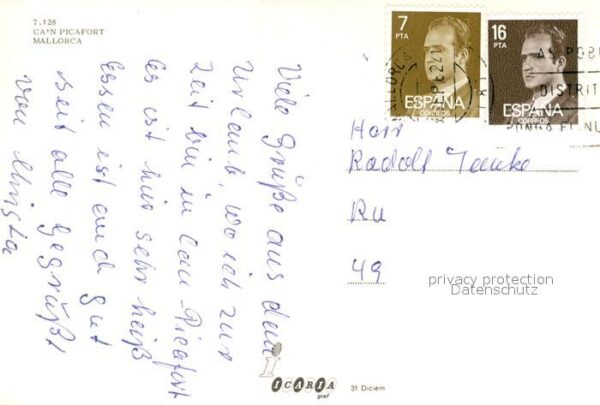 7.128
CA'N PICAFORT
MALLORCA
Viele Grüße aus dem
Urlaub, wo ich zur
Zeit bin in Can Picafort
Es ist hier sehr heiß
Essen ist auch gut
Seit alle gegrüßt
von Christa
7
PTA
ESPAÑA
CORREOS
16
PTA
ESPAÑA
CORREOS
MALLORCA
DISTRIT
Herr
Rudolf
49
privacy protection
Datenschutz
ICARIA
graf
31 Diciem